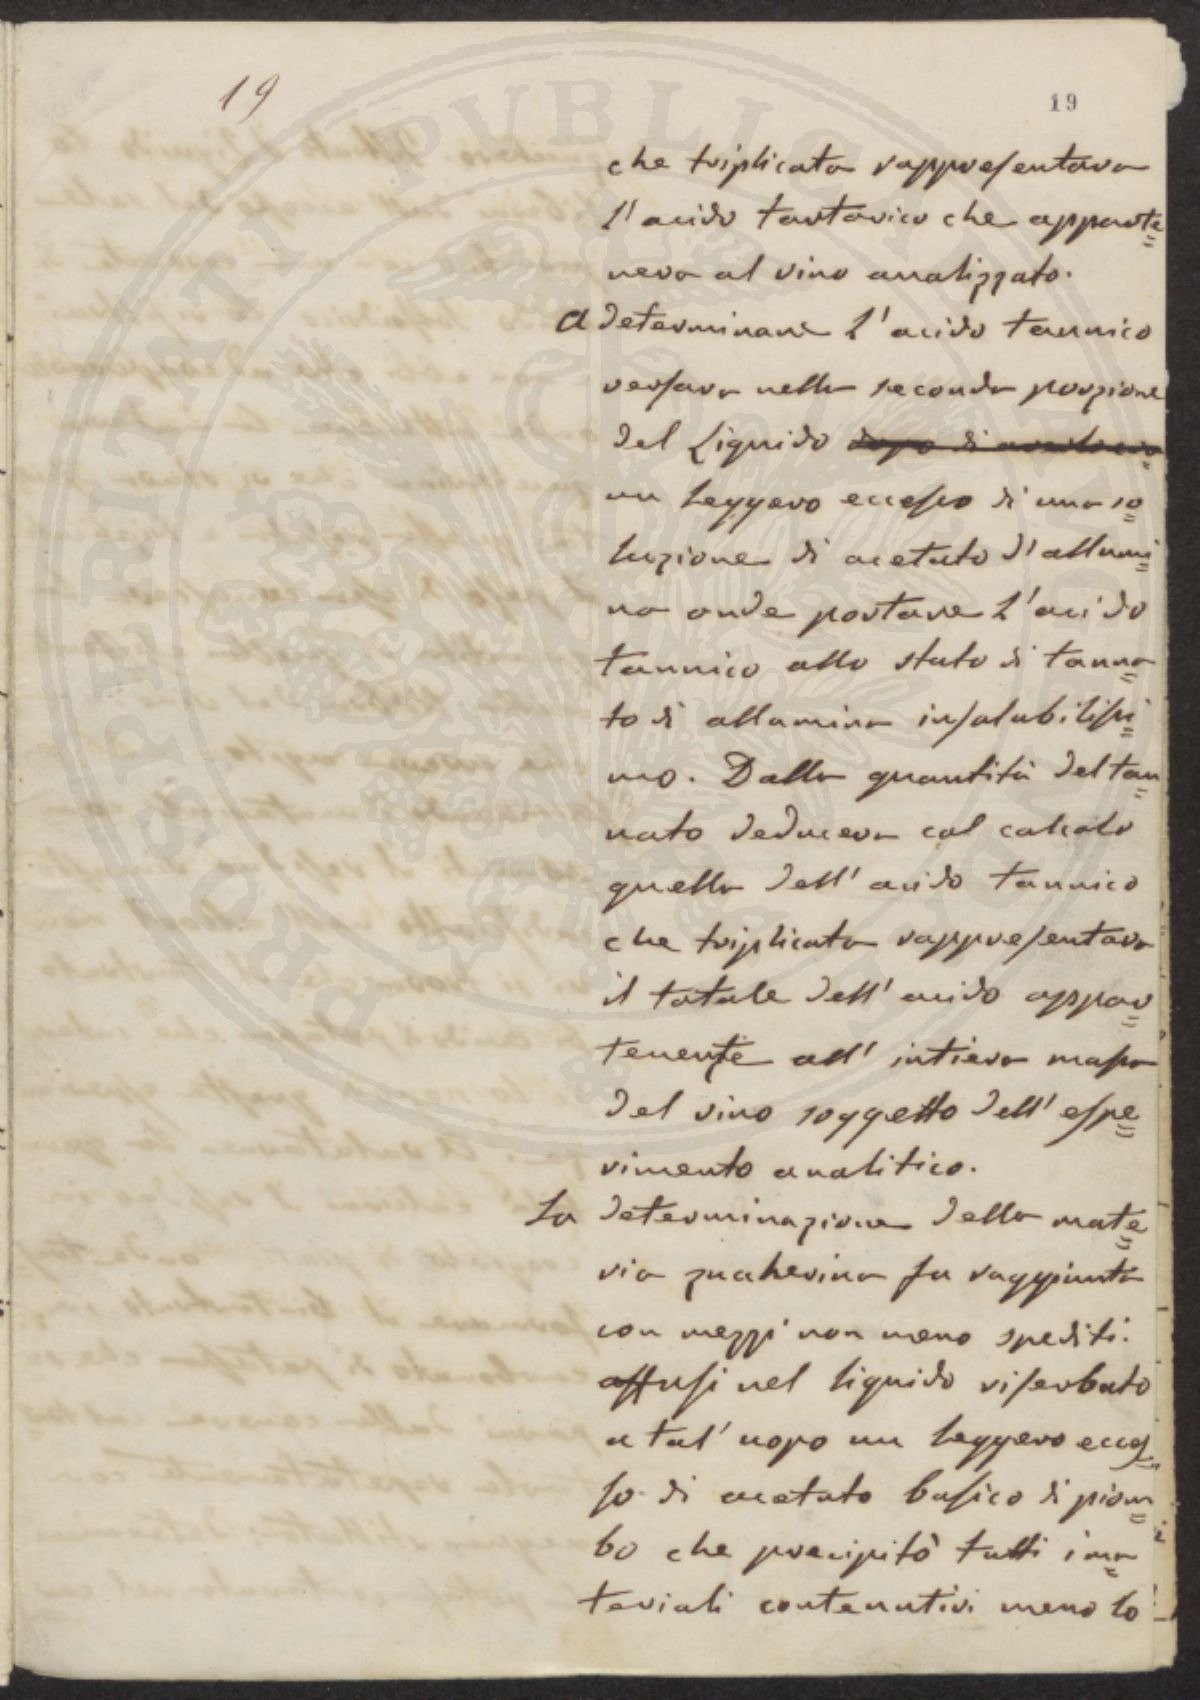 19
19
che triplicata rappresentava
l'acido tartarico che apparte=
neva al vino analizzato.
A determinare l'acido tannico
versava nella seconda porzione
del Liquido
un leggero eccesso di una so=
luzione di acetato d'allumi=
na onde portare l'acido
tannico allo stato di tanna=
to di allumina insolubilissi=
mo. Dalla quantità del tan=
nato deduceva col calcolo
quella dell'acido tannico
che triplicata rappresentava
il totale dell'acido appar=
tenente all'intiera massa
del vino soggetto dell'espe=
rimento analitico.
La determinazione della mate=
ria zucherina fu raggiunta
con mezzi non meno spediti.
affusi nel liquido riserbato
a tal'uopo un leggero ecces=
so di acetato basico di piom=
bo che precipitò tutti i ma=
teriali contenutivi meno lo
PROSPERITATI PUBLICAE